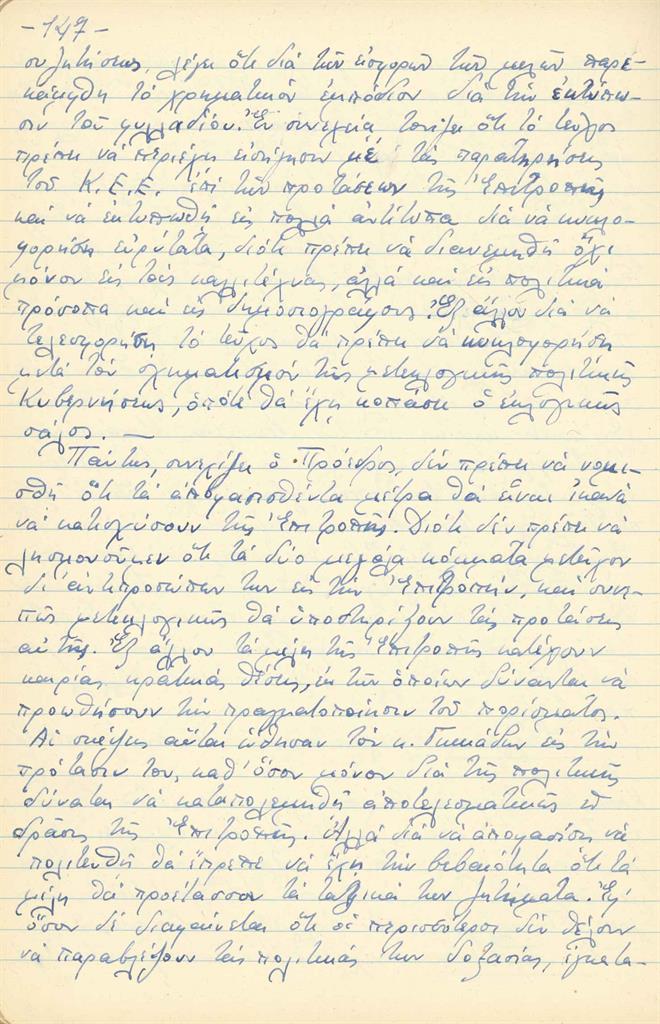 -147-
συζητήσεως, λέγει ὅτι διὰ τῶν εἰσφορῶν τῶν μελῶν παρε-
κάμφθη τὸ χρηματικὸν ἐμπόδιον διὰ τὴν ἐκτύπω-
σιν τοῦ φυλλαδίου. Ἐν συνεχείᾳ, τονίζει ὅτι τὸ τεῦχος
πρέπει νὰ περιέχῃ εἰσήγησιν μὲ τὰς παρατηρήσεις
τοῦ Κ.Ε.Ε. ἐπὶ τῶν προτάσεων τῆς Ἐπιτροπῆς
καὶ νὰ ἐκτυπωθῇ εἰς πολλὰ ἀντίτυπα διὰ νὰ κυκλο-
φορήσῃ εὐρύτατα, διότι πρέπει νὰ διανεμηθῇ ὄχι
μόνον εἰς τοὺς καλλιτέχνας, ἀλλὰ καὶ εἰς πολιτικὰ
πρόσωπα καὶ εἰς δημοσιογράφους. Ἐξ ἄλλου διὰ νὰ
τελεσφορήσῃ τὸ τεῦχος θὰ πρέπει νὰ κυκλοφορήσῃ
μετὰ τὸν σχηματισμὸν τῆς μετεκλογικῆς πολιτικῆς
Κυβερνήσεως, ὁπότε θὰ ἔχῃ κοπάσει ὁ ἐκλογικὸς
σάλος. —
Πάντως, συνεχίζει ὁ Πρόεδρος, δὲν πρέπει νὰ νομι-
σθῇ ὅτι τὰ ἀποφασισθέντα μέτρα θὰ εἶναι ἱκανὰ
νὰ κατισχύσουν τῆς Ἐπιτροπῆς. Διότι δὲν πρέπει νὰ
λησμονοῦμεν ὅτι τὰ δύο μεγάλα κόμματα μετεῖχον
δι' ἀντιπροσώπων των εἰς τὴν Ἐπιτροπήν, καὶ συνε-
πῶς μετεκλογικῶς θὰ ὑποστηρίξουν τὰς προτάσεις
αὐτῆς. Ἐξ ἄλλου τὰ μέλη τῆς Ἐπιτροπῆς κατέχουν
καιρίας κρατικὰς θέσεις, ἐκ τῶν ὁποίων δύνανται νὰ
προωθήσουν τὴν πραγματοποίησιν τοῦ πορίσματος.
Αἱ σκέψεις αὗται ὤθησαν τὸν κ. εἰς τὴν
πρότασίν του, καθ' ὅσον μόνον διὰ τῆς πολιτικῆς
δύναται νὰ καταπολεμηθῇ ἀποτελεσματικῶς ἡ
δρᾶσις τῆς Ἐπιτροπῆς. Ἀλλὰ διὰ νὰ ἀποφασίσῃ νὰ
πολιτευθῇ θὰ ἔπρεπε νὰ ἔχῃ τὴν βεβαιότητα ὅτι τὰ
μέλη θὰ προέτασσον τὰ ταξικά των ζητήματα. Ἐφ'
ὅσον δὲ διαφαίνεται ὅτι οἱ περισσότεροι δὲν θέλουν
νὰ παραβλέψουν τὰς πολιτικάς των δοξασίας, ἐγκατα-